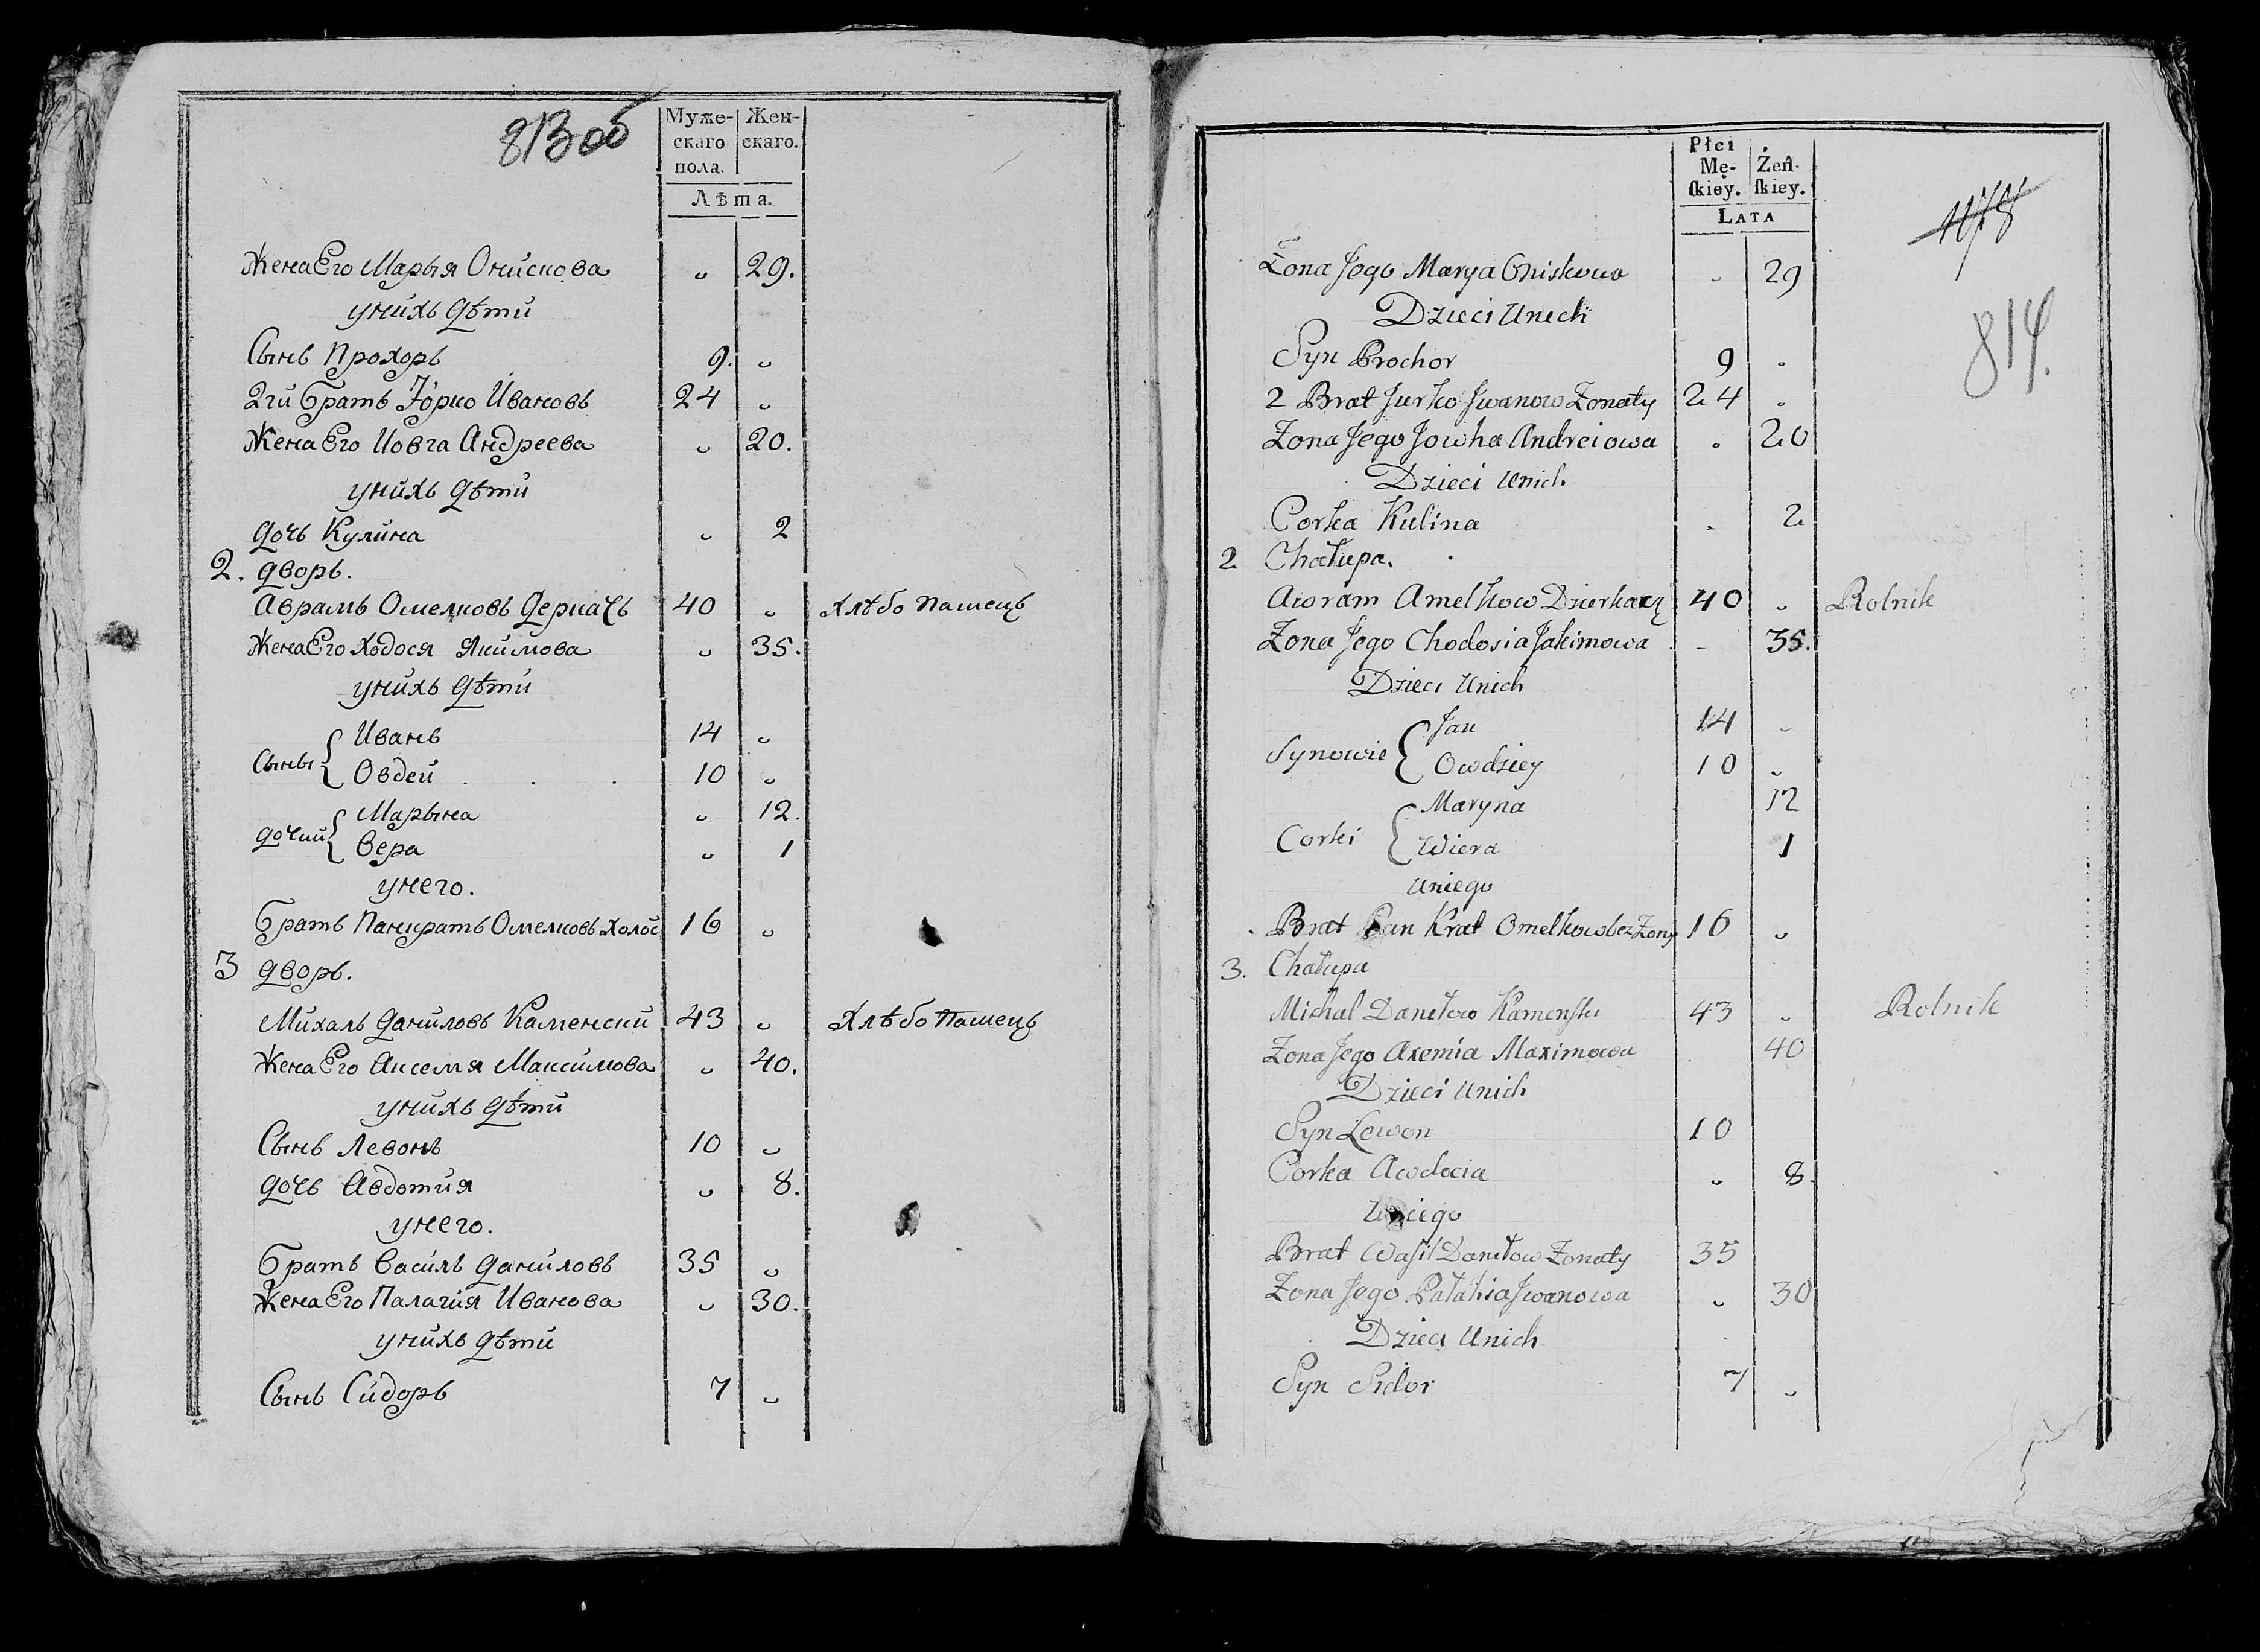 813 об
Муже- Жен-
скаго скаго.
пола.
Лѣта.
Жена Его Марья Онискова „ 29.
унихъ дѣти
Сынъ Прохоръ 9. „
2й братъ Юрко Ивановъ 24 „
Жена Его Иовга Андреева „ 20.
унихъ дѣти
дочь Кулина „ 2
2. дворъ.
Аврамъ Омелковъ Деркачъ 40 „ Хлѣбо пашецъ
Жена Его Хведося Якимова „ 35.
унихъ дѣти
Сыны { Иванъ 14 „
Овдей 10 „
дочки { Марына „ 12.
Вера „ 1
унего.
братъ Панкратъ Омелковъ холос 16 „
3 дворъ.
Михалъ Даниловъ Каменски 43 „ Хлѣбо пашецъ
Жена Его Аксемя Максимова „ 40.
унихъ дѣти
Сынъ Левонъ 10 „
дочь Авдотия „ 8.
унего.
братъ Василъ Даниловъ 35 „
Жена Его Палагия Иванова „ 30.
унихъ дѣти
Сынъ Сидоръ 7 „
Płci
Mę- Żeń-
skiey. skiey.
LATA
814.
Zona Jego Marya Oniskowa „ 29
Dzieci Unich
Syn Prochor 9 „
2 Brat Jurko Jwanow Zonaty 24 „
Zona Jego Jowha Andreiowa „ 20
Dzieci Unich
Corka Kulina „ 2
2 Chałupa.
Awram Amelkow Dzierkacz 40 „ Rolnik
Zona Jego Chodosia Jakimowa „ 35.
Dzieci Unich
Synowie { Jan 14 „
Owdziey 10 „
Corki { Maryna 12
Wiera 1
Uniego
Brat Pan Krat Omelkow bez Zony 16 „
3. Chałupa
Michał Daniłow Kamenski 43 „ Rolnik
Zona Jego Axemia Maximowa 40
Dzieci Unich
Syn Lewon 10
Corka Awdocia „ 8.
Uniego
Brat Wasil Daniłow Zonaty 35
Zona Jego Pałahia Jwanowa „ 30
Dzieci Unich
Syn Sidor 7 „